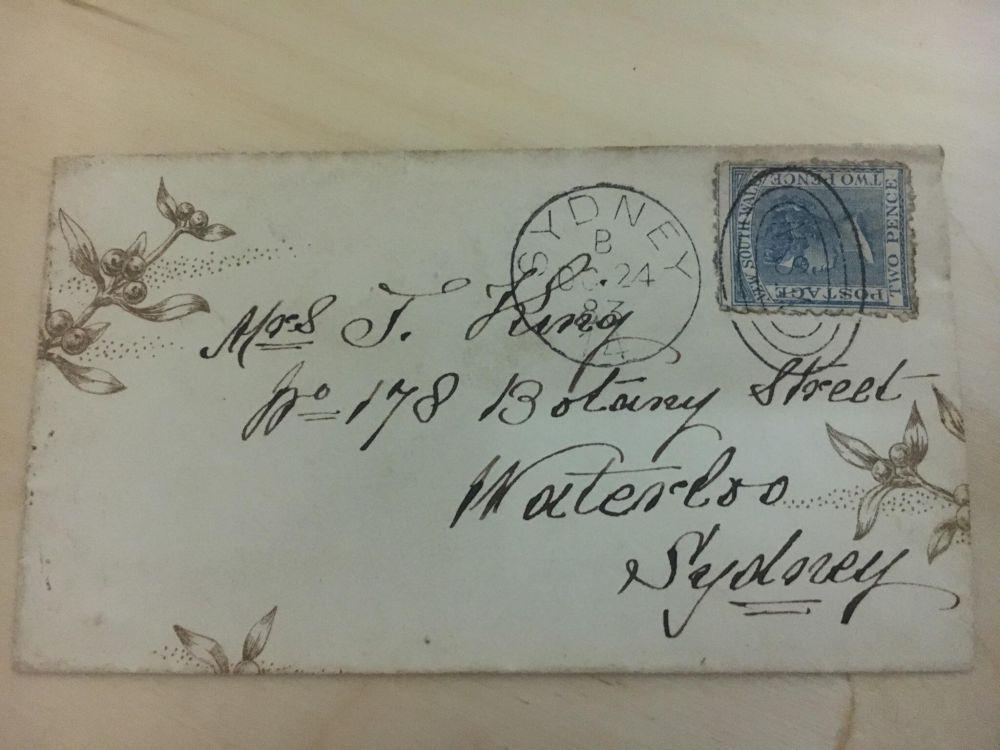 SYDNEY
B
OC.24
83
NEW SOUTH WALES
TWO PENCE
TWO PENCE
POSTAGE
Mrs T. King
No 178 Botany Street
Waterloo
Sydney